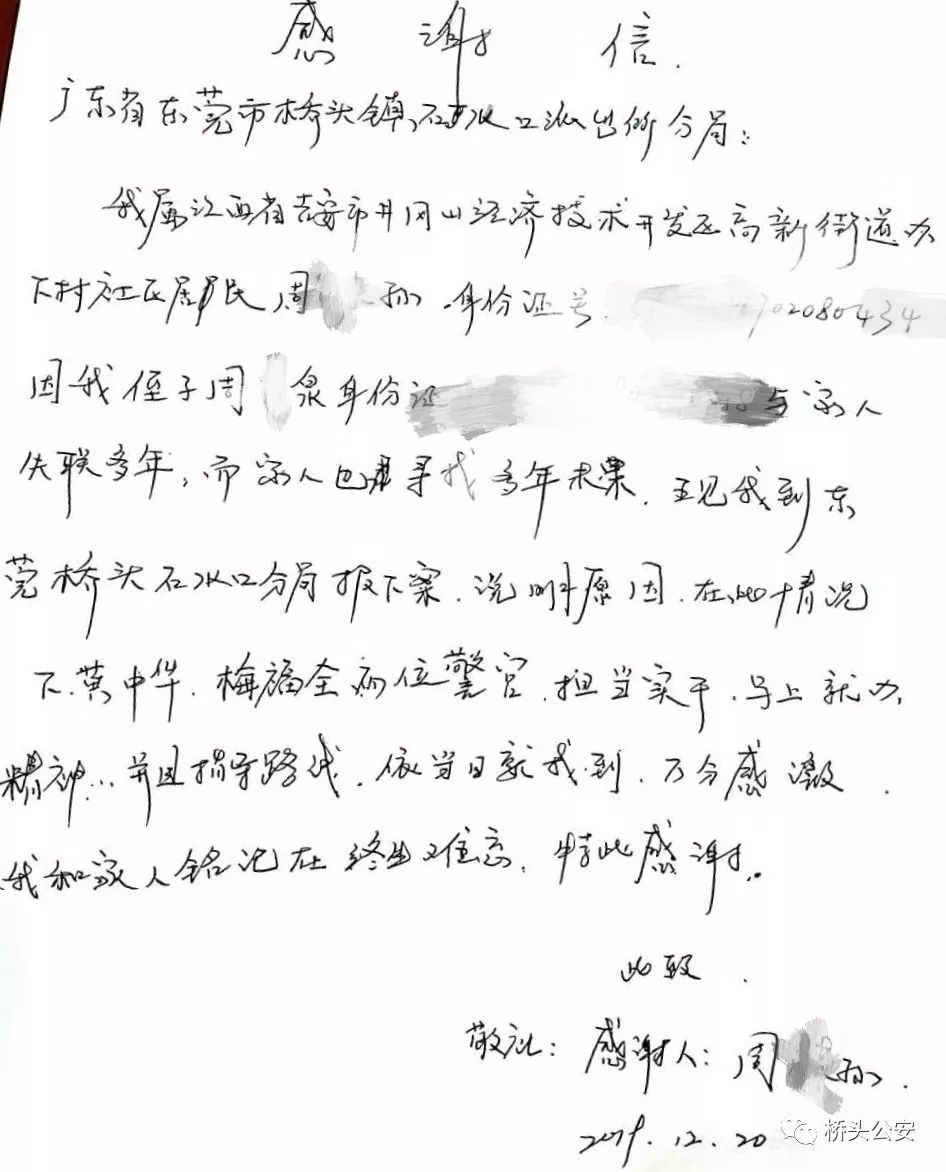 感谢信.
广东省东莞市桥头镇石水口派出所分局:
我属江西省吉安市井冈山经济技术开发区高新街道办
下村社区居民周孙 身份证号. 702080434
因我侄子周泉身份证 与家人
失联多年,而家人也寻找多年未果.我到东
莞桥头石水口分局报下案.说明原因.在此情况
下.黄中华.梅福全两位警官.担当实干.马上就办,
精神...并且指导路线.依当日就找到.万分感激.
我和家人铭记在终生难忘.特此感谢.
此致.
敬礼:感谢人:周孙.
2019.12.20
桥头公安